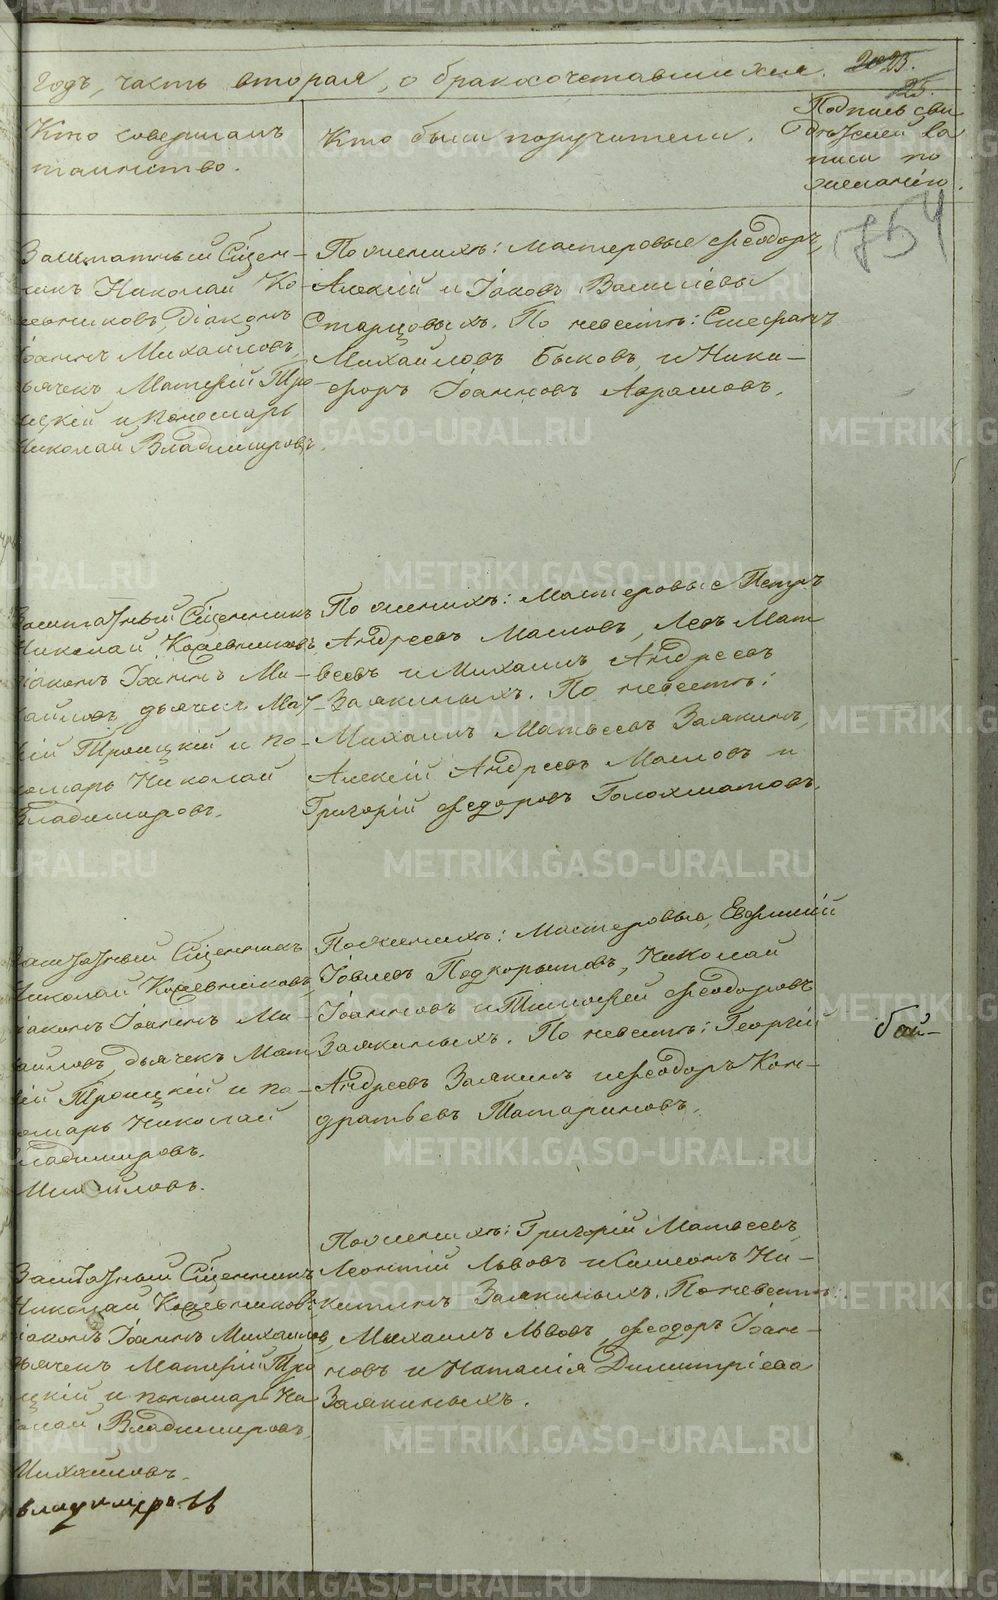 годъ, часть вторая, о бракосочетавшихся.
25.
25.
Кто совершалъ
таинство.
Кто были поручители.
Подпись сви
дѣтелей за
писи по
желанію.
754
Заштатный Сщен-
никъ Николай Ко
жевниковъ, Діаконъ
Іоаннъ Михайловъ,
дьячекъ Матфій Тро
ицкій и пономарь
Николай Владимировъ.
По женихѣ: мастеровые Феодоръ,
Алексій и Іаковъ Васильевы
Старцовыхъ. По невестѣ: Стефанъ
Михайловъ Быковъ, и Ники-
форъ Іоанновъ Абрамовъ.
Заштатный Сщенникъ
Николай Кожевниковъ,
діаконъ Іоаннъ Ми-
хайловъ, дьячекъ Мат-
фій Троицкій и по-
номарь Николай
Владимировъ.
По женихѣ: Мастеровые Петръ
Андреевъ Масловъ, Левъ Мат
веевъ и Михаилъ Андреевъ
Заякиныхъ. По невестѣ:
Михаилъ Матвеевъ Заякинъ,
Алексій Андреевъ Масловъ и
Григорій Федоровъ Голохматовъ.
Заштатный Сщенникъ
Николай Кожевниковъ,
діаконъ Іоаннъ Ми-
хайловъ, дьячекъ Мат
фій Троицкій и по-
номарь Николай
Владимировъ.
Михайловъ.
По женихѣ: Мастеровые, Евфимій
Іовлевъ Подкорытовъ, Николай
Іоанновъ и Тимофей Феодоровъ
Заякиныхъ. По невестѣ: Георгій
Андреевъ Заякинъ и Феодоръ Кон-
дратьевъ Татариновъ.
Заштатный Сщенникъ
Николай Кожевниковъ,
діаконъ Іоаннъ Михайловъ,
дьячекъ Матфій Тро
ицкій и пономарь Ни
колай Владимировъ.
Михайловъ.
владимировъ
По женихѣ: Григорій Матвеевъ,
Леонтій Львовъ и Симонъ Ни-
китинъ Заякиныхъ. По невестѣ:
Михаилъ Львовъ, Феодоръ Іоан-
новъ и Наталія Димитріева
Заякиныхъ.
METRIKI.GASO-URAL.RU